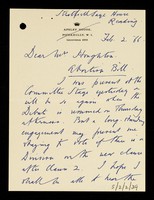 Stratfield Saye House
Reading
Feb. 2. 66
Dear Mr Houghton
Abortion Bill
I was present at the
Committee Stage yesterday &
will be so again when the
Debate is resumed on Thursday
afternoon. But a long-standing
engagement may prevent me
staying to vote if there is a
Division on the new clause
after clause 2. I hope I
shall be able to hear the
5/2/2/24